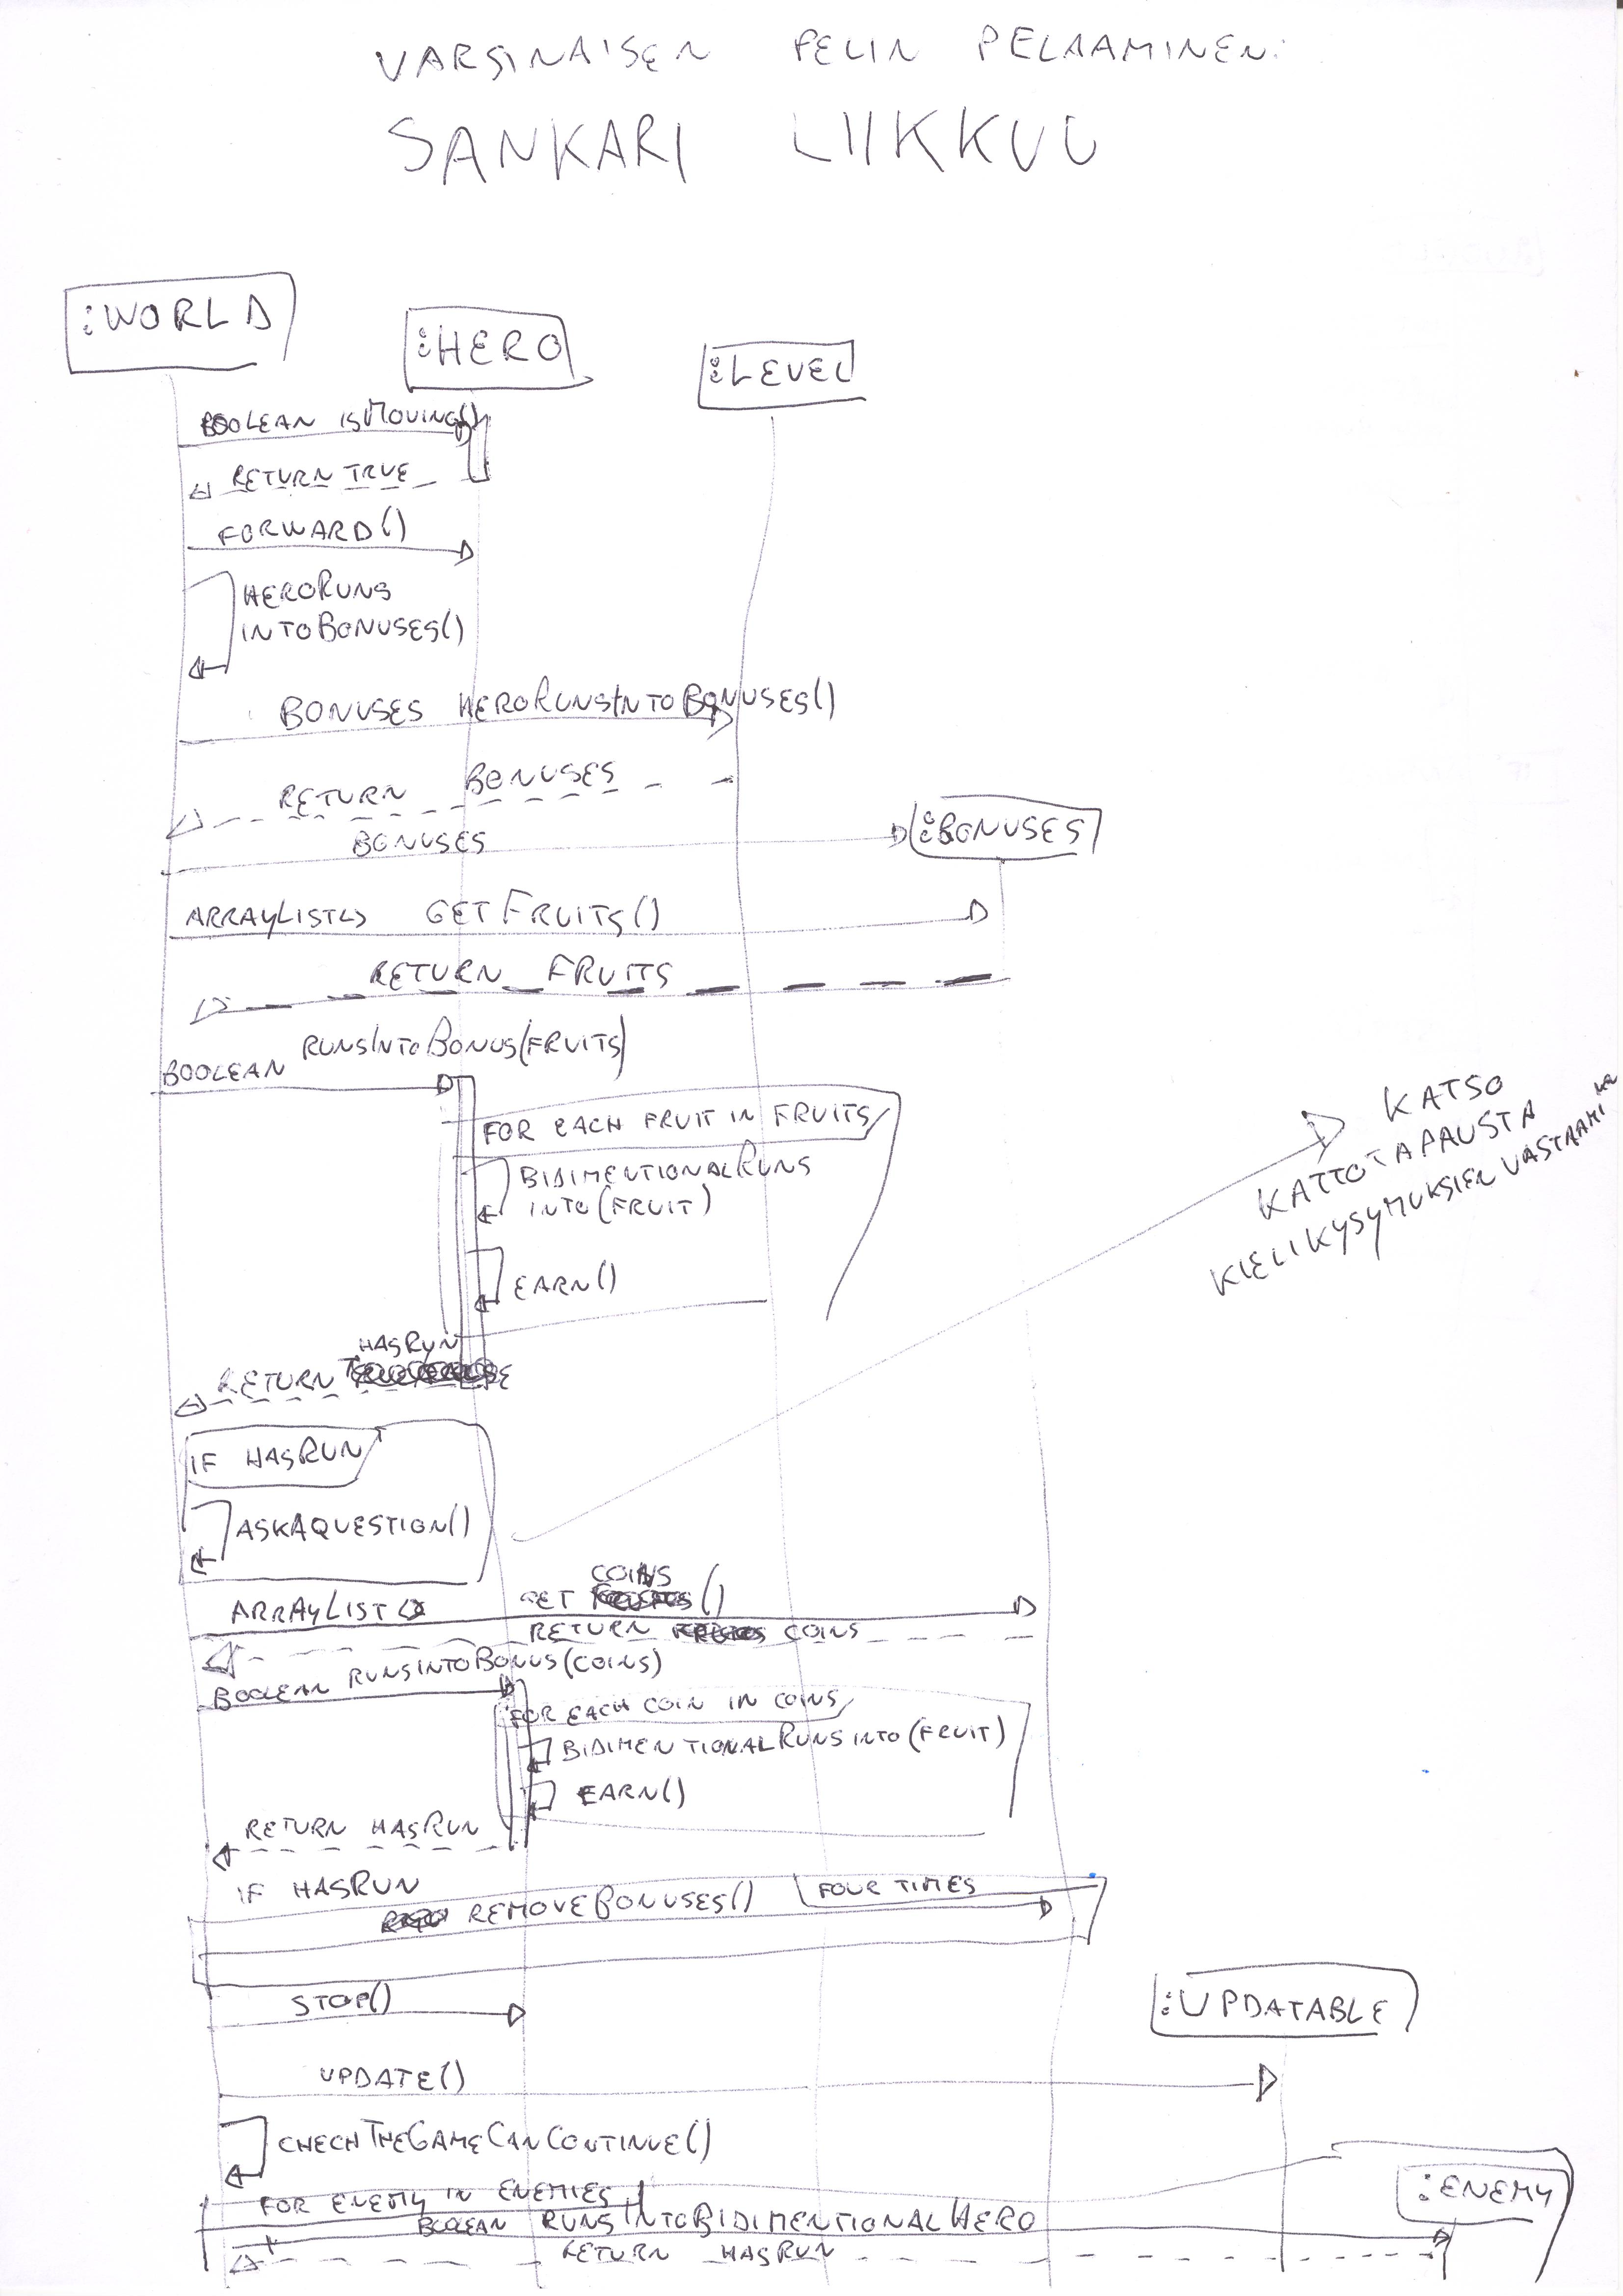 VARSINAISEN PELIN PELAAMINEN:
SANKARI LIIKKUU
:WORLD
:HERO
:LEVEL
BOOLEAN ISMOVING()
RETURN TRUE
FORWARD()
HERORUNS
INTOBONUSES()
BONUSES HERORUNSINTOBONUSES()
RETURN BONUSES
BONUSES
:BONUSES
ARRAYLIST<> GETFRUITS()
RETURN FRUITS
RUNSINTOBONUS(FRUITS)
BOOLEAN
FOR EACH FRUIT IN FRUITS
BIDIMENTIONALRUNS
INTO(FRUIT)
EARN()
KATSO
KÄTTÖTAPAUSTA
KIELIKYSYMUKSIEN VASTAAMI
HASRUN
RETURN
IF HASRUN
ASKAQUESTION()
COINS
ARRAYLIST<> GET ()
RETURN COINS
BOOLEAN RUNSINTOBONUS(COINS)
FOR EACH COIN IN COINS
BIDIMENTIONALRUNSINTO(FRUIT)
EARN()
RETURN HASRUN
IF HASRUN
REMOVEBONUSES() FOUR TIMES
STOP()
:UPDATABLE
UPDATE()
CHECHTHEGAMECANCONTINUE()
:ENEMY
FOR ENEMY IN ENEMIES
BOOLEAN RUNSINTOBIDIMENTIONALHERO
RETURN HASRUN